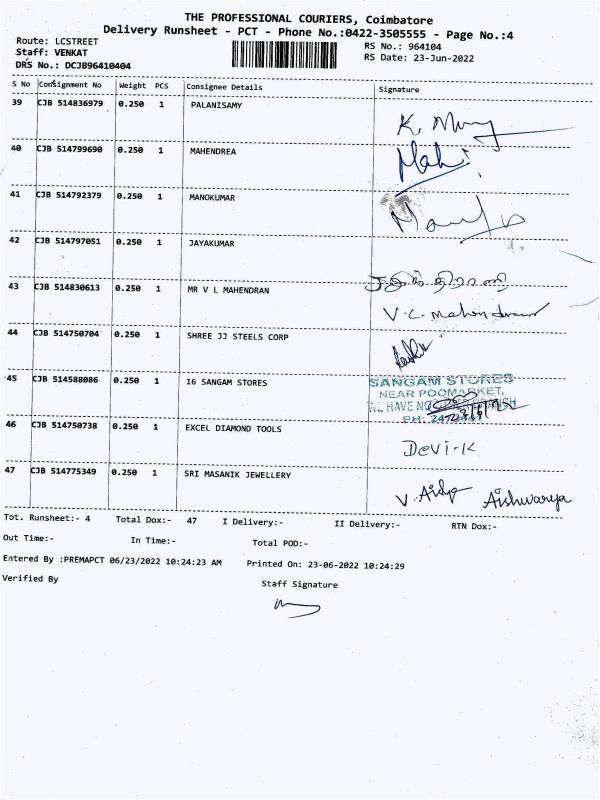 THE PROFESSIONAL COURIERS, Coimbatore
Delivery Runsheet - PCT - Phone No.:0422-3505555 - Page No.:4
Route: LCSTREET
RS No.: 964104
Staff: VENKAT
RS Date: 23-Jun-2022
DRS No.: DCJB96410404
S No Consignment No Weight PCS Consignee Details Signature
39 CJB 514836979 0.250 1 PALANISAMY
40 CJB 514799690 0.250 1 MAHENDREA
41 CJB 514792379 0.250 1 MANOKUMAR
42 CJB 514797051 0.250 1 JAYAKUMAR
43 CJB 514830613 0.250 1 MR V L MAHENDRAN
44 CJB 514750704 0.250 1 SHREE JJ STEELS CORP
45 CJB 514588086 0.250 1 16 SANGAM STORES
SANGAM STORES
NEAR POOMARKET,
46 CJB 514750738 0.250 1 EXCEL DIAMOND TOOLS
Devi-K
47 CJB 514775349 0.250 1 SRI MASANIK JEWELLERY
Aishwarya
Tot. Runsheet:- 4 Total Dox:- 47 I Delivery:- II Delivery:- RTN Dox:-
Out Time:- In Time:- Total POD:-
Entered By :PREMAPCT 06/23/2022 10:24:23 AM Printed On: 23-06-2022 10:24:29
Verified By Staff Signature